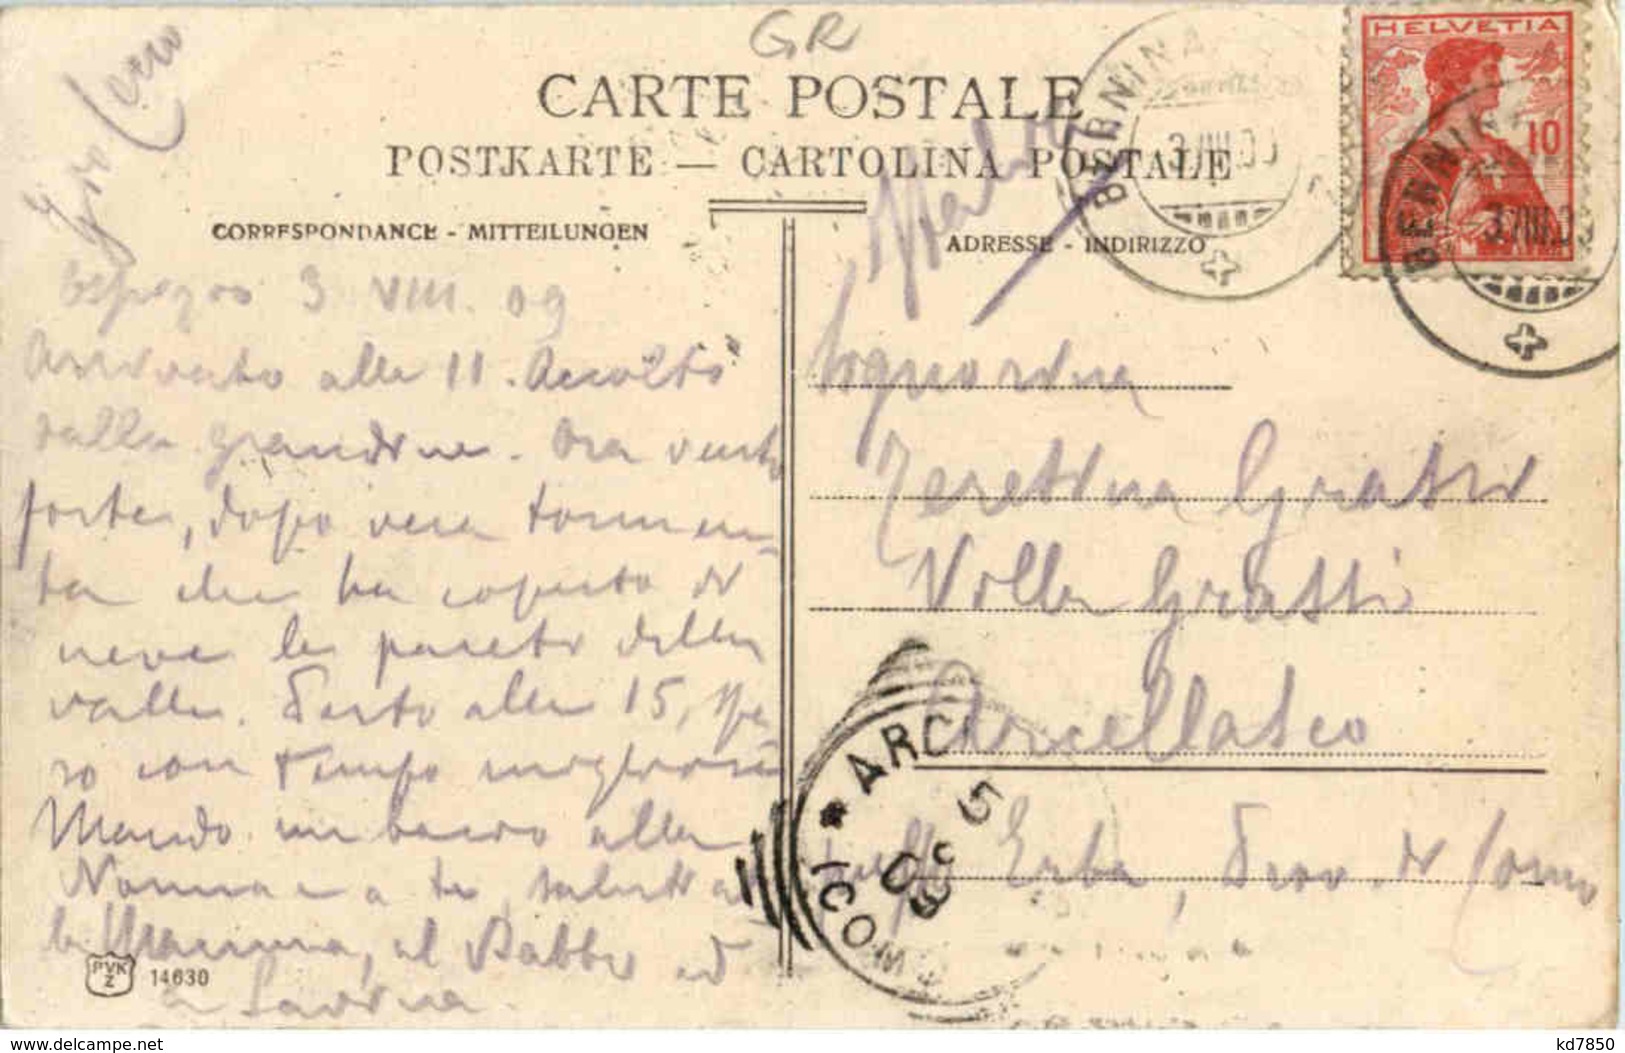 GR
CARTE POSTALE
POSTKARTE — CARTOLINA POSTALE
CORRESPONDANCE - MITTEILUNGEN
ADRESSE - INDIRIZZO
HELVETIA
10
BERNINA
3.VIII.0
BERNINA
3.VIII.0
Italia
3 VIII. 09
Arrivato alle 11. Accolto
dalla grandine. Ora vento
forte, dopo vera tormen-
ta che ha coperto di
neve le pareti della
valle. Parto alle 15, spe
ro con tempo
Mando un bacio alla
Nonna e a te, saluti al
la Mamma, al Babbo ed
a
Signorina
Teresina Grassi
Villa Grassi
Arcellasco
Erba, Prov. di Como
ARC
5
09
(COMO)
PVK
Z
14630
www.delcampe.net
kd7850